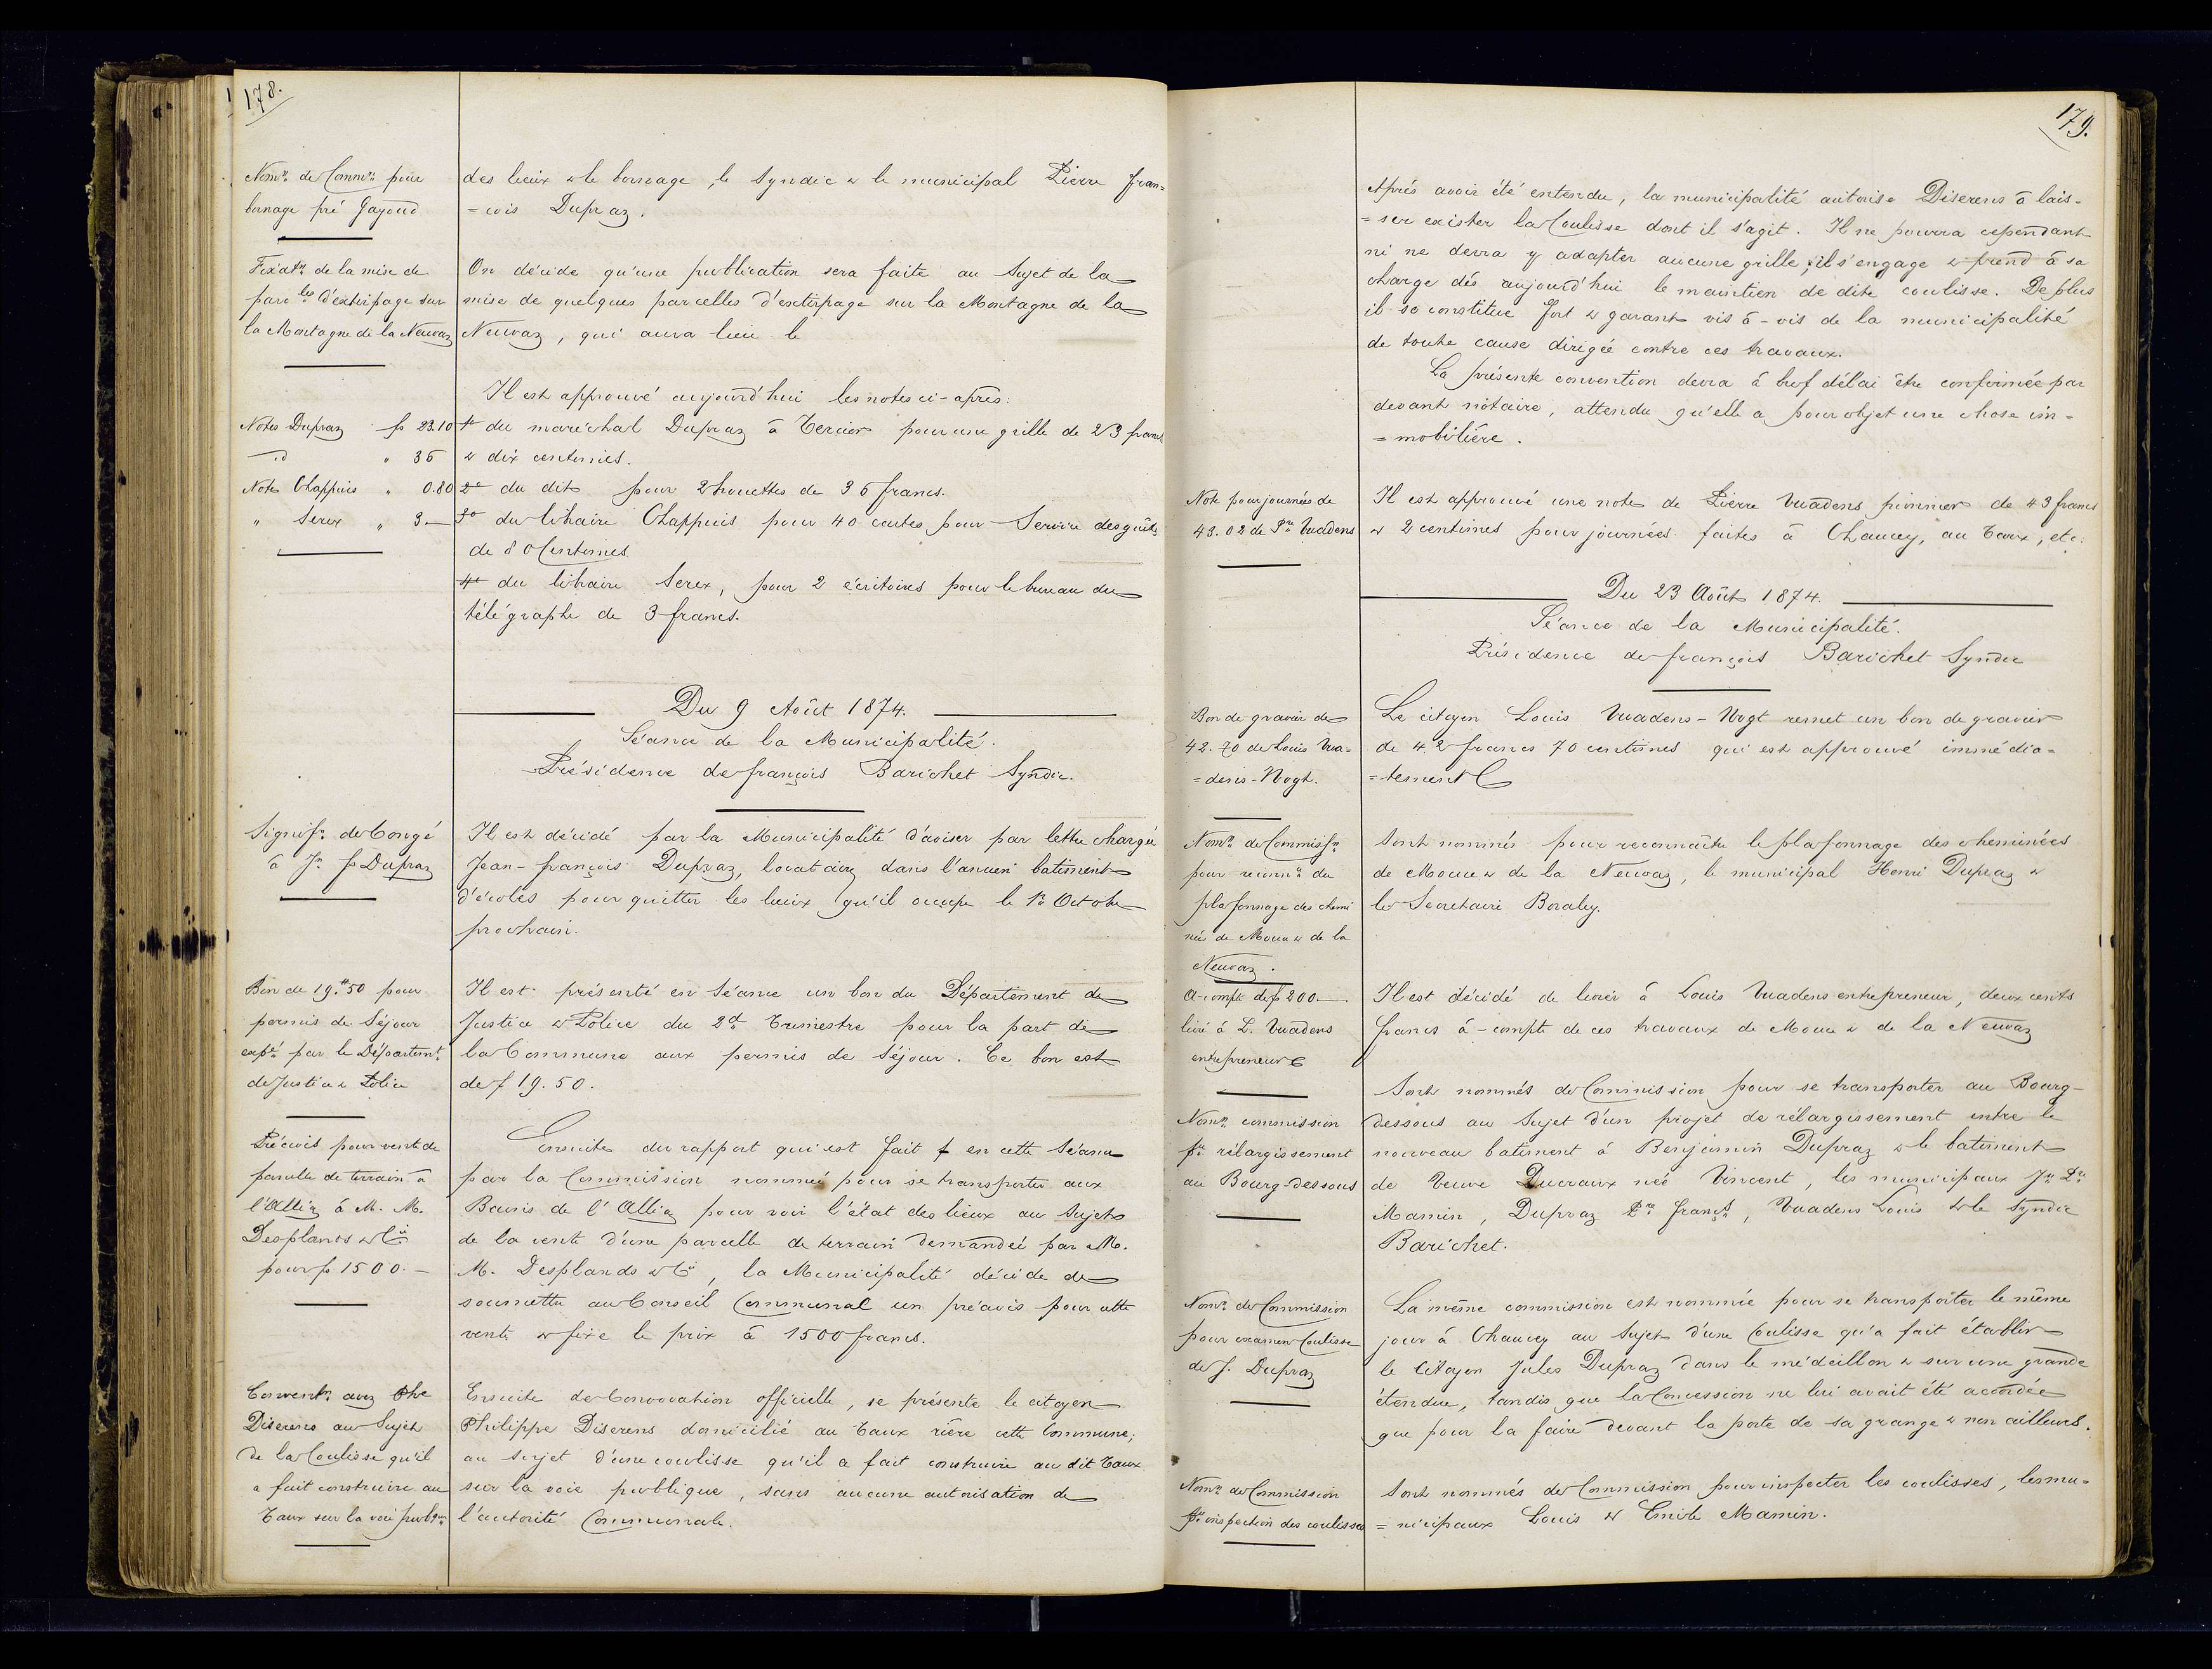 178.
Nomn. de Commn. pour
bornage pré Gayoud
des lieux & le bornage, le Syndic & le municipal Pierre Fran=
=cois Dupraz.
Fixatn. de la mise de
parcles d'extirpage sur
la Montagne de la Neuvaz
On décide qu'une publication sera faite au Sujet de la
mise de quelques parcelles d'extirpage sur la Montagne de la
Neuvaz, qui aura lieu le
Il est approuvé aujourd'hui les notes ci-après:
Notes Dupraz fs 23.10
id " 36
Note Chappuis " 0.80
" Serex " 3.—
1° du maréchal Dupraz à Tercier pour une grille de 23 francs
& dix centimes.
2° du dit pour 2 houettes de 36 francs.
3° du libraire Chappuis pour 40 cartes pour Service des guêts
de 80 Centimes
4° du libraire Serex, pour 2 écritoires pour le bureau du
télégraphe de 3 francs.
Du 9 Août 1874.
Séance de la Municipalité.
Présidence de françois Barichet Syndic.
Signifn. de Congé
à Jn. fs Dupraz
Il est décidé par la Municipalité d'aviser par lettre chargée
Jean-françois Dupraz, locataire dans l'ancien batiment
d'écoles pour quitter les lieux qu'il occupe le 1er Octobre
prochain.
Bon de 19.fr 50 pour
permis de Séjour
expé. par le Départemt.
de Justice & Police
Il est présenté en Séance un bon du Département de
Justice & Police du 2d Trimestre pour la part de
la Commune aux permis de Séjour. Ce bon est
de f 19.50.
Préavis pour vente de
parcelle de terrain à
l'Alliaz à M. M.
Desplands & Cie
pour fs 1500.—
Ensuite du rapport qui est fait en cette Séance
par la Commission nommée pour se transporter aux
Bains de l'Alliaz pour voir l'état des lieux au Sujet
de la vente d'une parcelle de terrain demandée par M.
M. Desplands & Cie, la Municipalité décide de
soumettre au Conseil Communal un préavis pour cette
vente & fixe le prix à 1500 francs.
Conventn. avez Phe
Diserens au Sujet
de la Coulisse qu'il
a fait construire au
Taux sur la voie publque
Ensuite de Convocation officielle, se présente le citoyen
Philippe Diserens domicilié au Taux rière cette Commune,
au sujet d'une coulisse qu'il a fait construire au dit Taux
sur la voie publique, sans aucune autorisation de
l'autorité Communale.
179.
Après avoir été entendu, la municipalité autorise Diserens à lais-
=ser exister la Coulisse dont il s'agit. Il ne pourra cependant
ni ne devra y adapter aucune grille; il s'engage & prend à sa
charge dès aujourd'hui le maintien de dite coulisse. De plus
il se constitue fort & garant vis à-vis de la municipalité
de toute cause dirigée contre ces travaux.
La présente convention devra à bref délai être confirmée par
devant notaire, attendu qu'elle a pour objet une chose im-
=mobilière.
Note pour journées de
43.02 de Pre Vuadens
Il est approuvé une note de Pierre Vuadens pionnier de 43 francs
& 2 centimes pour journées faites à Chaucey, au Taux, etc.
Du 23 Août 1874.
Séance de la Municipalité.
Présidence de françois Barichet Syndic
Bon de gravier de
42.70 de Louis Vua=
=dens-Vogt.
Le citoyen Louis Vuadens-Vogt remet un bon de gravier
de 42 francs 70 centimes qui est approuvé immédia=
=tement
Nomn. de Commissn.
pour reconnce du
plafonnage des chemi
nées de Mouce & de la
Neuvaz.
Sont nommés pour reconnaître le plafonnage des cheminées
de Mouce & de la Neuvaz, le municipal Henri Dupraz &
le Secretaire Boraley.
A-compte de fs 200.—
livré à L. Vuadens
entrepreneur
Il est décidé de livrer à Louis Vuadens entrepreneur, deux cents
francs à-compte de ces travaux de Mouce & de la Neuvaz
Nomn. commission
pr. rélargissement
au Bourg-dessous
Sont nommés de Commission pour se transporter au Bourg-
dessous au Sujet d'un projet de rélargissement entre le
nouveau batiment à Benjamin Dupraz & le batiment
de Veuve Ducraux née Vincent, les municipaux Jn. Ls.
Mamin, Dupraz Pre françs, Vuadens Louis & le Syndic
Barichet.
Nomn. de Commission
pour examen Coulisse
de J. Dupraz
La même commission est nommée pour se transporter le même
jour à Chaucey au Sujet d'une Coulisse qu'a fait établir
le Citoyen Jules Dupraz dans le médeillon & sur une grande
étendue, tandis que la Concession ne lui avait été accordée
que pour la faire devant la porte de sa grange & non ailleurs.
Nomn. de Commission
pr. inspection des coulisses
Sont nommés de Commission pour inspecter les coulisses, les mu=
=nicipaux Louis & Emile Mamin.